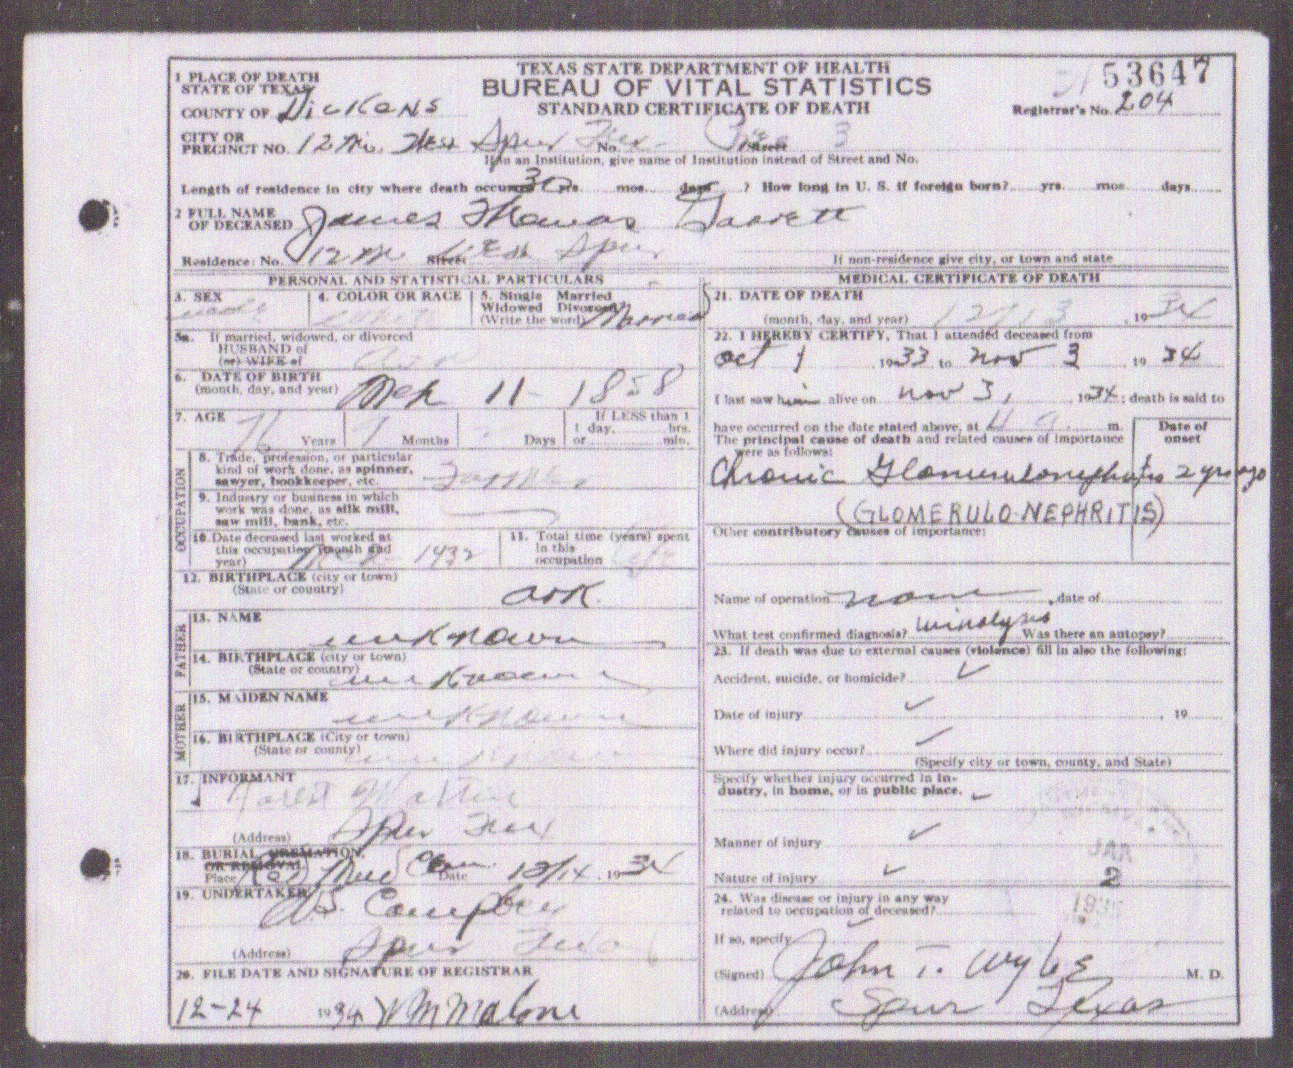 TEXAS STATE DEPARTMENT OF HEALTH
BUREAU OF VITAL STATISTICS
STANDARD CERTIFICATE OF DEATH
53647
Registrar's No. 204
1 PLACE OF DEATH
STATE OF TEXAS
COUNTY OF Dickens
CITY OR
PRECINCT NO. 12 Mi. Spur Tex No. Street 3
If in an Institution, give name of Institution instead of Street and No.
Length of residence in city where death occurred 30 yrs. mos. days ? How long in U. S. if foreign born? yrs. mos. days
2 FULL NAME
OF DECEASED James Thomas Garrett
Residence: No. 12 m Street Spur
If non-residence give city, or town and state
PERSONAL AND STATISTICAL PARTICULARS
3. SEX male
4. COLOR OR RACE
5. Single Married
Widowed Divorced
(Write the word) Married
5a. If married, widowed, or divorced
HUSBAND of
(or) WIFE of
6. DATE OF BIRTH
(month, day, and year) Mch 11 - 1858
7. AGE 76 Years 9 Months Days If LESS than 1
1 day, hrs.
or min.
OCCUPATION
8. Trade, profession, or particular
kind of work done, as spinner,
sawyer, bookkeeper, etc. Farmer
9. Industry or business in which
work was done, as silk mill,
saw mill, bank, etc.
10. Date deceased last worked at
this occupation (month and
year) 1932
11. Total time (years) spent
in this
occupation
12. BIRTHPLACE (city or town)
(State or country) Ark.
FATHER
13. NAME unknown
14. BIRTHPLACE (city or town)
(State or country) unknown
MOTHER
15. MAIDEN NAME unknown
16. BIRTHPLACE (City or town)
(State or county) unknown
17. INFORMANT
(Address) Spur Tex
18. BURIAL, CREMATION,
OR REMOVAL
Place Red Mud Cem. Date 12/14 1934
19. UNDERTAKER Campbell
(Address) Spur Texas
20. FILE DATE AND SIGNATURE OF REGISTRAR
12-24 1934 Malone
MEDICAL CERTIFICATE OF DEATH
21. DATE OF DEATH
(month, day, and year) 12 13, 1934
22. I HEREBY CERTIFY, That I attended deceased from
Oct 1 1933 to Nov 3 1934
I last saw him alive on Nov 3, 1934; death is said to
have occurred on the date stated above, at 4 a. m.
The principal cause of death and related causes of importance
were as follows:
Date of
onset
Chronic Glomerulonephritis 2 yrs ago
(GLOMERULO-NEPHRITIS)
Other contributory causes of importance:
Name of operation none, date of
What test confirmed diagnosis? urinalysis Was there an autopsy?
23. If death was due to external causes (violence) fill in also the following:
Accident, suicide, or homicide? ✓
Date of injury ✓ , 19
Where did injury occur? ✓
(Specify city or town, county, and State)
Specify whether injury occurred in in-
dustry, in home, or in public place. ✓
Manner of injury ✓
Nature of injury ✓
JAN
2
1935
24. Was disease or injury in any way
related to occupation of deceased?
If so, specify
(Signed) John T. Wylie M. D.
(Address) Spur Texas